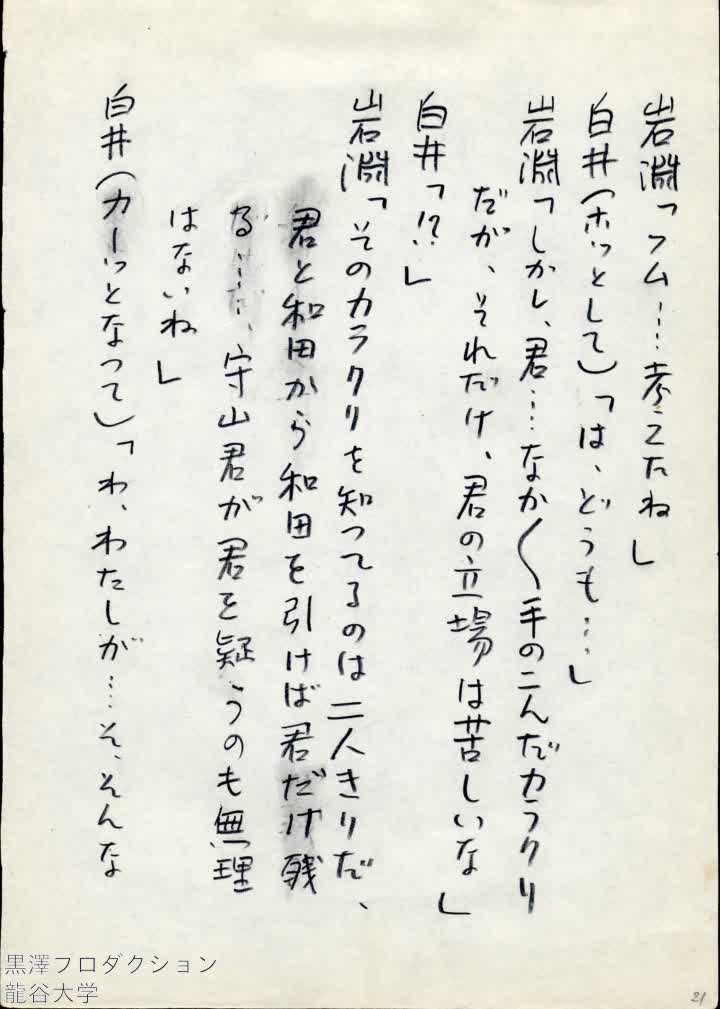 岩淵「フム…考えたね」
白井（ホッとして）「は、どうも…」
岩淵「しかし、君…なか〱手のこんだカラクリ
だが、それだけ、君の立場は苦しいな」
白井「!?」
岩淵「そのカラクリを知ってるのは二人きりだ、
君と和田から和田を引けば君だけ残
る……、守山君が君を疑うのも無理
はないね」
白井（カーッとなって）「わ、わたしが…そ、そんな
黒澤プロダクション
龍谷大学
21